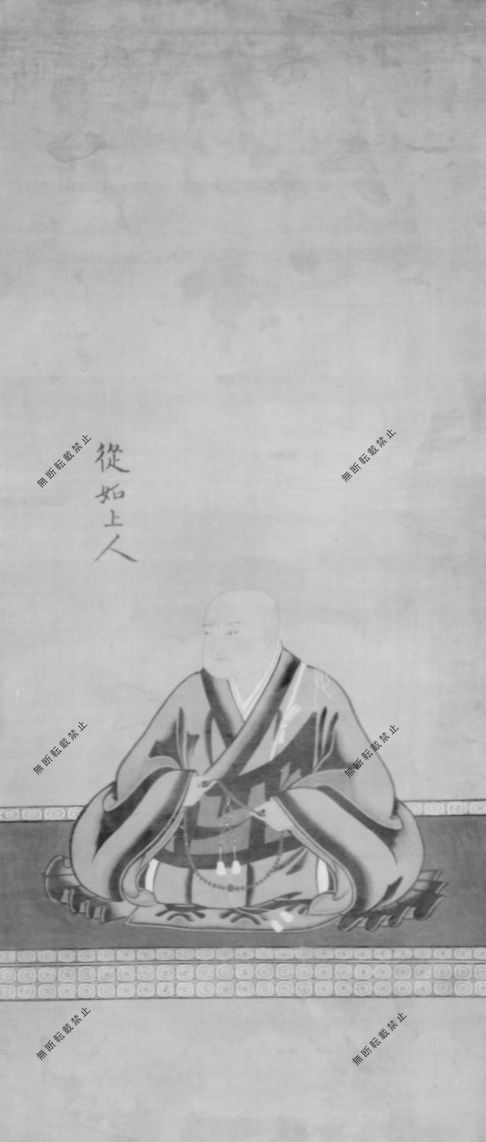 從如上人
無断転載禁止
無断転載禁止
無断転載禁止
無断転載禁止
無断転載禁止
無断転載禁止